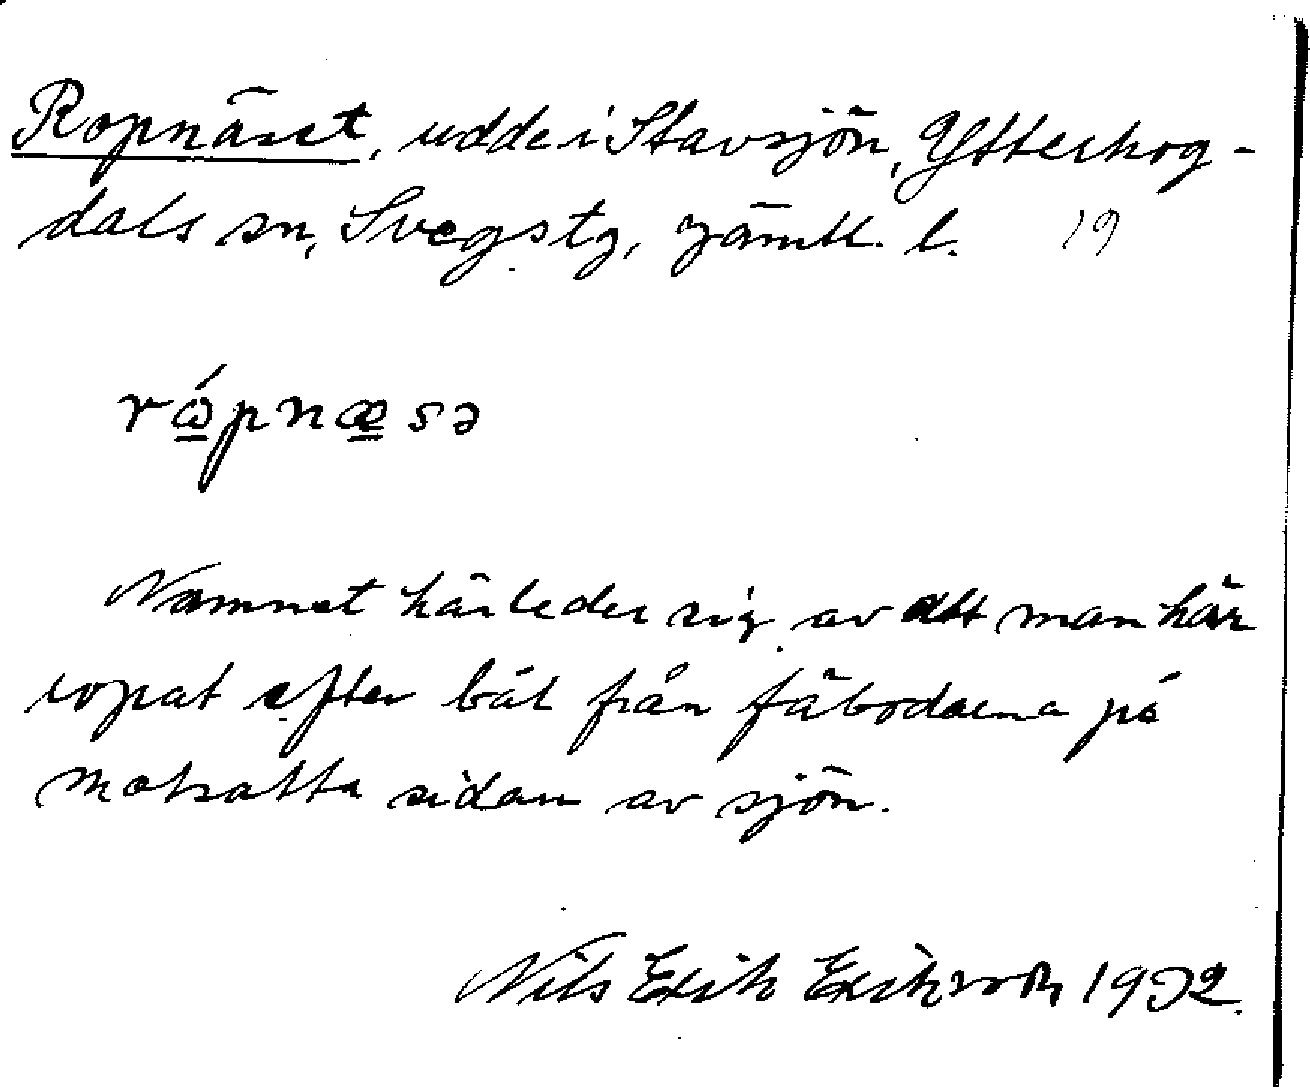 Ropnäset, udde i Stavsjön, Ytterhog-
dals sn, Svegs tg, Jämtl. l. 19
rópnæsə
Namnet härleder sig av att man här
ropat efter båt från fäbodarna på
motsatta sidan av sjön.
Nils Erik Erikson 1932.